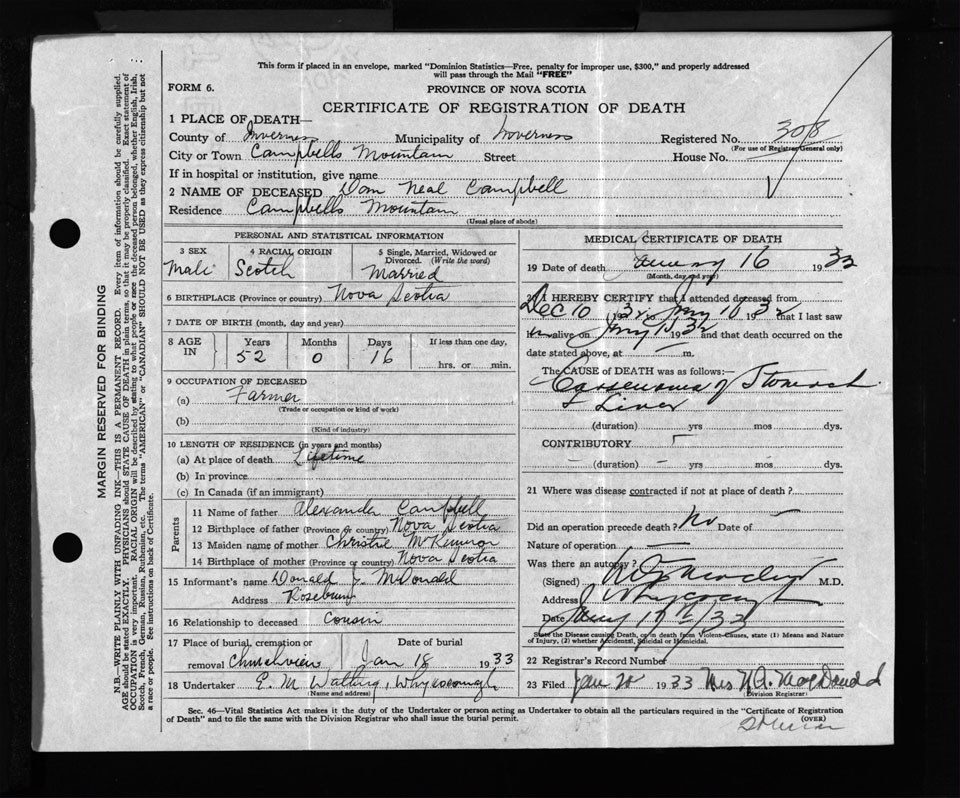 This form if placed in an envelope, marked "Dominion Statistics—Free, penalty for improper use, $300," and properly addressed
will pass through the Mail "FREE"
FORM 6.
PROVINCE OF NOVA SCOTIA
CERTIFICATE OF REGISTRATION OF DEATH
1 PLACE OF DEATH—
County of Inverness Municipality of Inverness Registered No. 3018
(For use of Registrar General only)
City or Town Campbells Mountain Street House No.
If in hospital or institution, give name
2 NAME OF DECEASED Dan Neal Campbell
Residence Campbells Mountain
(Usual place of abode)
PERSONAL AND STATISTICAL INFORMATION
3 SEX Male
4 RACIAL ORIGIN Scotch
5 Single, Married, Widowed or Divorced. (Write the word) Married
6 BIRTHPLACE (Province or country) Nova Scotia
7 DATE OF BIRTH (month, day and year)
8 AGE IN Years 52 Months 0 Days 16 If less than one day, hrs. or min.
9 OCCUPATION OF DECEASED
(a) Farmer
(Trade or occupation or kind of work)
(b)
(Kind of industry)
10 LENGTH OF RESIDENCE (in years and months)
(a) At place of death Lifetime
(b) In province
(c) In Canada (if an immigrant)
Parents
11 Name of father Alexander Campbell
12 Birthplace of father (Province or country) Nova Scotia
13 Maiden name of mother Christie McKinnon
14 Birthplace of mother (Province or country) Nova Scotia
15 Informant's name Donald J. McDonald
Address Roseburn
16 Relationship to deceased Cousin
17 Place of burial, cremation or Date of burial
removal Churchview Jan 18 1933
18 Undertaker E. M Watling, Whycocomagh
(Name and address)
MEDICAL CERTIFICATE OF DEATH
19 Date of death January 16 1932
(Month, day and year)
20 I HEREBY CERTIFY that I attended deceased from
Dec 10 1932 to Jany 16 1932 that I last saw
him alive on Jany 1932 and that death occurred on the
date stated above, at — m.
The CAUSE OF DEATH was as follows:—
Carsenoma of Stomach
& Liver
(duration) yrs mos dys.
CONTRIBUTORY —
— (duration) — yrs — mos dys.
21 Where was disease contracted if not at place of death?
Did an operation precede death? No Date of —
Nature of operation —
Was there an autopsy?
(Signed) M.D.
Address Whycocomagh
Date Jany 17th /32
State the Disease causing Death, or in death from Violent Causes, state (1) Means and Nature
of Injury, (2) whether Accidental, Suicidal or Homicidal.
22 Registrar's Record Number
23 Filed Jan 20 1933 Mrs MacDonald
(Division Registrar)
Sec. 46—Vital Statistics Act makes it the duty of the Undertaker or person acting as Undertaker to obtain all the particulars required in the "Certificate of Registration
of Death" and to file the same with the Division Registrar who shall issue the burial permit.
(OVER)
MARGIN RESERVED FOR BINDING
N.B.—WRITE PLAINLY WITH UNFADING INK—THIS IS A PERMANENT RECORD. Every item of information should be carefully supplied.
AGE should be stated EXACTLY. PHYSICIANS should STATE CAUSE OF DEATH in plain terms, so that it may be properly classified. Exact statement of
OCCUPATION is very important. RACIAL ORIGIN will be described by stating to what people or race the deceased person belonged, whether English, Irish,
Scotch, French, German, Russian, Ruthenian, etc. The terms "AMERICAN" or "CANADIAN" SHOULD NOT BE USED as they express citizenship but not
a race or people. See instructions on back of Certificate.